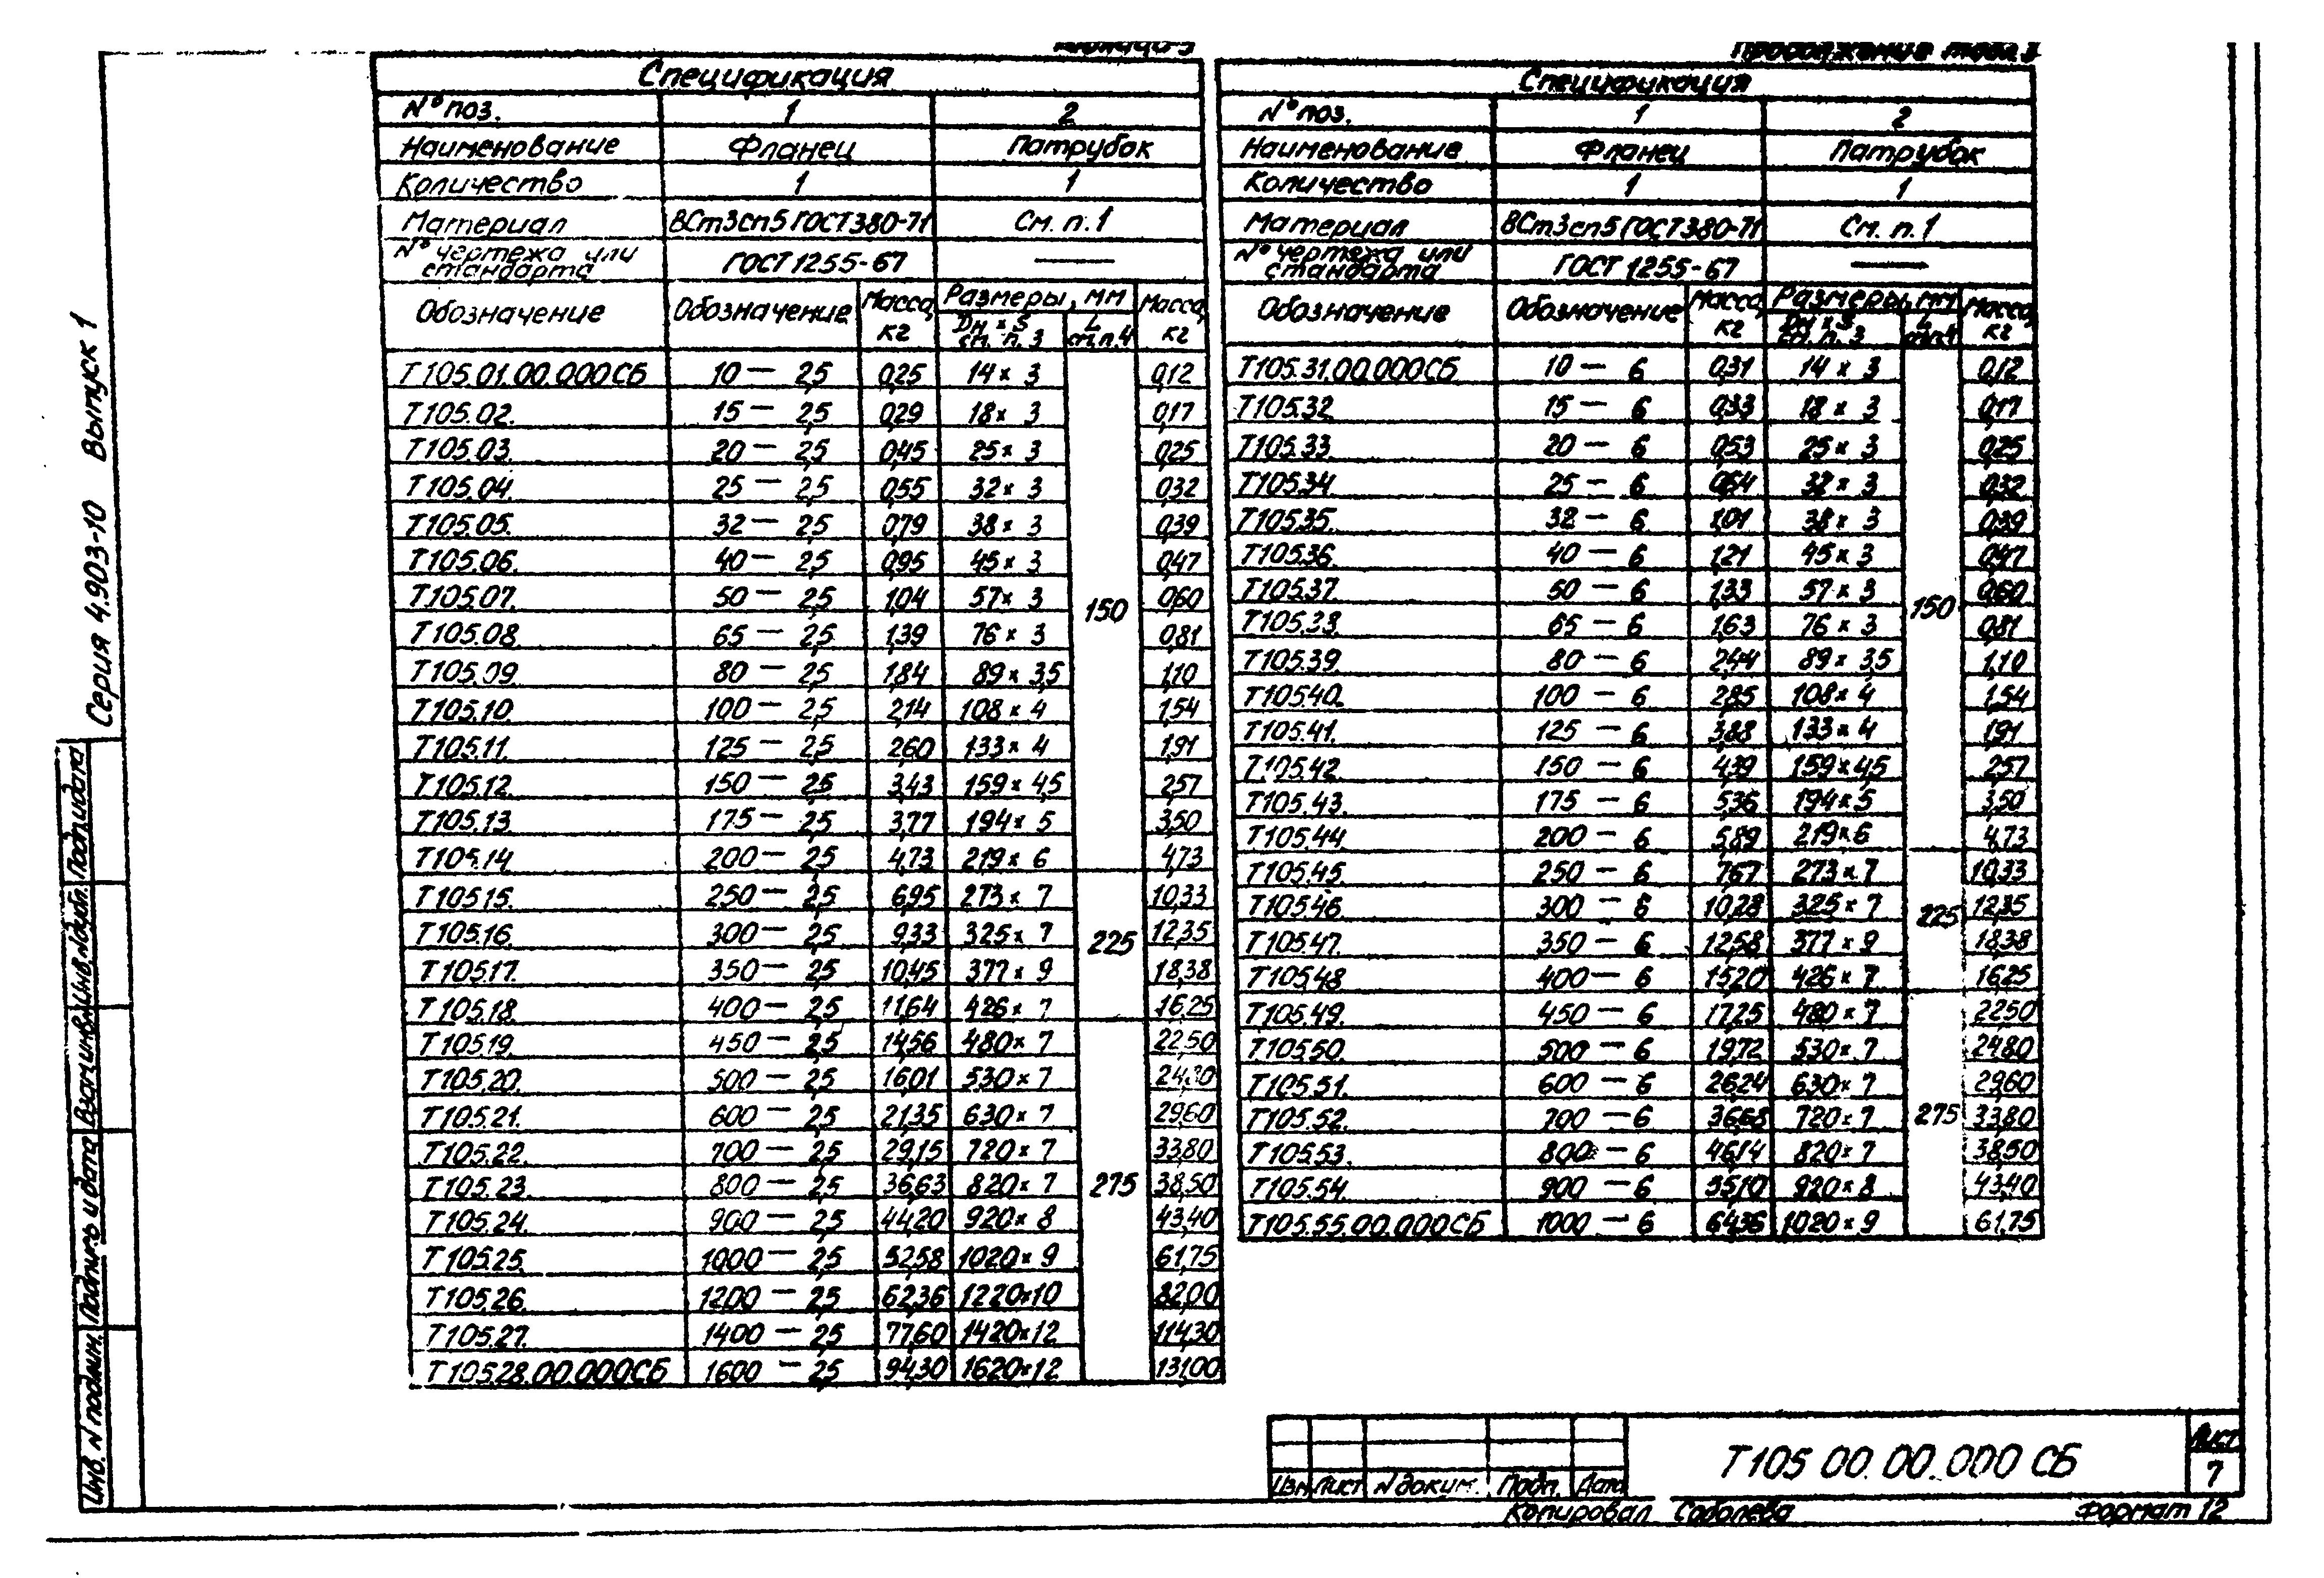 Продолжение табл. 3
Спецификация
№ поз. 1 2
Наименование Фланец Патрубок
Количество 1 1
Материал ВСт3сп5 ГОСТ380-71 См. п. 1
№ чертежа или стандарта ГОСТ 1255-67 —
Обозначение Обозначение Масса, кг Размеры, мм Масса, кг
Dн × S см. п. 3 L см. п. 4
Т105.01.00.000СБ 10 — 2,5 0,25 14 × 3 0,12
Т105.02. 15 — 2,5 0,29 18 × 3 0,17
Т105.03. 20 — 2,5 0,45 25 × 3 0,25
Т105.04. 25 — 2,5 0,55 32 × 3 0,32
Т105.05. 32 — 2,5 0,79 38 × 3 0,39
Т105.06. 40 — 2,5 0,95 45 × 3 0,47
Т105.07. 50 — 2,5 1,04 57 × 3 150 0,60
Т105.08. 65 — 2,5 1,39 76 × 3 0,81
Т105.09. 80 — 2,5 1,84 89 × 3,5 1,10
Т105.10. 100 — 2,5 2,14 108 × 4 1,54
Т105.11. 125 — 2,5 2,60 133 × 4 1,91
Т105.12. 150 — 2,5 3,43 159 × 4,5 2,57
Т105.13. 175 — 2,5 3,77 194 × 5 3,50
Т105.14. 200 — 2,5 4,73 219 × 6 4,73
Т105.15. 250 — 2,5 6,95 273 × 7 10,33
Т105.16. 300 — 2,5 9,33 325 × 7 225 12,35
Т105.17. 350 — 2,5 10,45 377 × 9 18,38
Т105.18. 400 — 2,5 11,64 426 × 7 16,25
Т105.19. 450 — 2,5 14,56 480 × 7 22,50
Т105.20. 500 — 2,5 16,01 530 × 7 24,80
Т105.21. 600 — 2,5 21,35 630 × 7 29,60
Т105.22. 700 — 2,5 29,15 720 × 7 33,80
Т105.23. 800 — 2,5 36,63 820 × 7 275 38,50
Т105.24. 900 — 2,5 44,20 920 × 8 43,40
Т105.25. 1000 — 2,5 52,58 1020 × 9 61,75
Т105.26. 1200 — 2,5 62,36 1220 × 10 82,00
Т105.27. 1400 — 2,5 77,60 1420 × 12 114,30
Т105.28.00.000СБ 1600 — 2,5 94,30 1620 × 12 131,00
Спецификация
№ поз. 1 2
Наименование Фланец Патрубок
Количество 1 1
Материал ВСт3сп5 ГОСТ380-71 См. п. 1
№ чертежа или стандарта ГОСТ 1255-67 —
Обозначение Обозначение Масса, кг Размеры, мм Масса, кг
Dн × S см. п. 3 L см. п. 4
Т105.31.00.000СБ 10 — 6 0,31 14 × 3 0,12
Т105.32. 15 — 6 0,33 18 × 3 0,17
Т105.33. 20 — 6 0,53 25 × 3 0,25
Т105.34. 25 — 6 0,64 32 × 3 0,32
Т105.35. 32 — 6 1,01 38 × 3 0,39
Т105.36. 40 — 6 1,21 45 × 3 0,47
Т105.37. 50 — 6 1,33 57 × 3 150 0,60
Т105.38. 65 — 6 1,63 76 × 3 0,81
Т105.39. 80 — 6 2,44 89 × 3,5 1,10
Т105.40. 100 — 6 2,85 108 × 4 1,54
Т105.41. 125 — 6 3,88 133 × 4 1,91
Т105.42. 150 — 6 4,39 159 × 4,5 2,57
Т105.43. 175 — 6 5,36 194 × 5 3,50
Т105.44. 200 — 6 5,89 219 × 6 4,73
Т105.45. 250 — 6 7,67 273 × 7 10,33
Т105.46. 300 — 6 10,28 325 × 7 225 12,35
Т105.47. 350 — 6 12,58 377 × 9 18,38
Т105.48. 400 — 6 15,20 426 × 7 16,25
Т105.49. 450 — 6 17,25 480 × 7 22,50
Т105.50. 500 — 6 19,72 530 × 7 24,80
Т105.51. 600 — 6 26,24 630 × 7 29,60
Т105.52. 700 — 6 36,68 720 × 7 275 33,80
Т105.53. 800 — 6 46,14 820 × 7 38,50
Т105.54. 900 — 6 55,10 920 × 8 43,40
Т105.55.00.000СБ 1000 — 6 64,36 1020 × 9 61,75
Серия 4.903-10 Выпуск 1
Инв. N подлин. Подпись и дата Взам.инв.N Инв.Nдубл. Подп.и дата
Изм Лист N докум. Подп. Дата
Т105 00. 00. 000 СБ
Лист
7
Копировал Соболева Формат 12